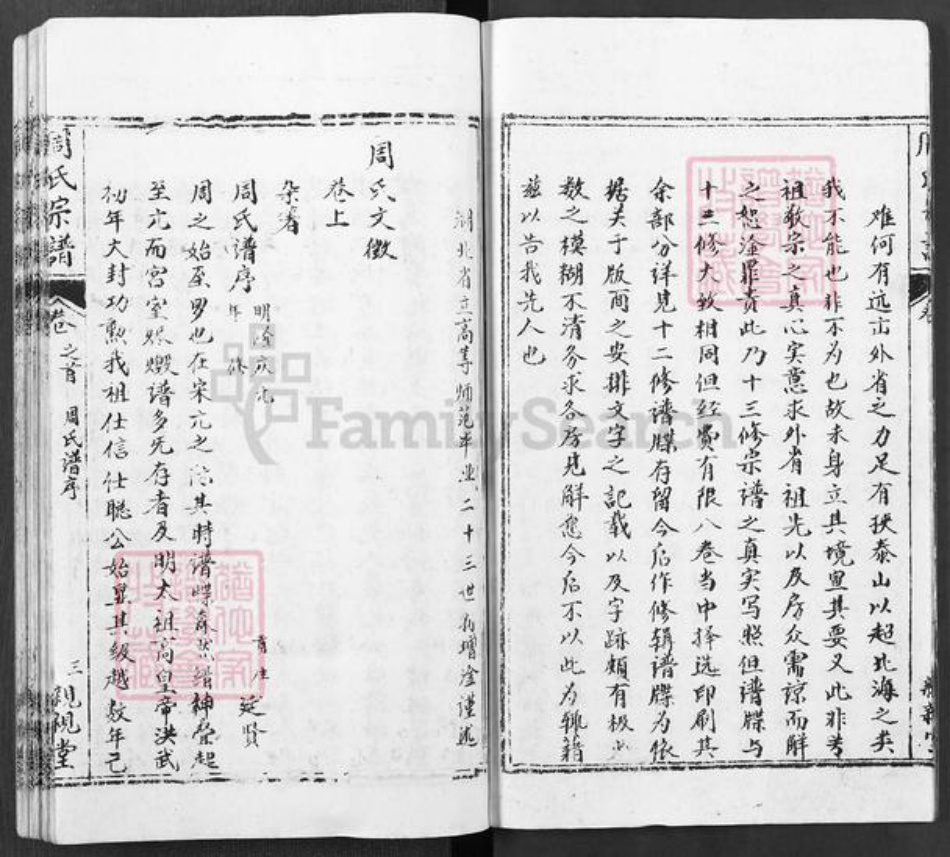 难何有远古外省之力足有挟泰山以超北海之类
我不能也非不为也故未身立其境
祖敬宗之真心实意求外省祖先以及房众需谅而解
之恕 罪责此乃十三修宗谱之真实写照但谱牒与
十三修大致相同但经费有限八卷当中择选印刷其
余部分详见十二修谱牒存留今后作修辑谱牒为依
据关于版面之安排文字之记载以及字跡颇有极少
数之模糊不清务求合房见解您今后不以此为
兹以告我先人也
湖北省立高等师范毕业二十三世 谨述
周氏文徵
卷上
杂著
周氏谱序 明隆庆元年修 廷贤
周之始至罗也在宋元之 其时谱牒
至元而宫室 煅谱多旡存者及明太祖高皇帝洪武
初年大封功勲我祖仕信仕聪公始 其级越数年己
周氏宗谱
卷之首 周氏谱序
三
亲视堂
FamilySearch